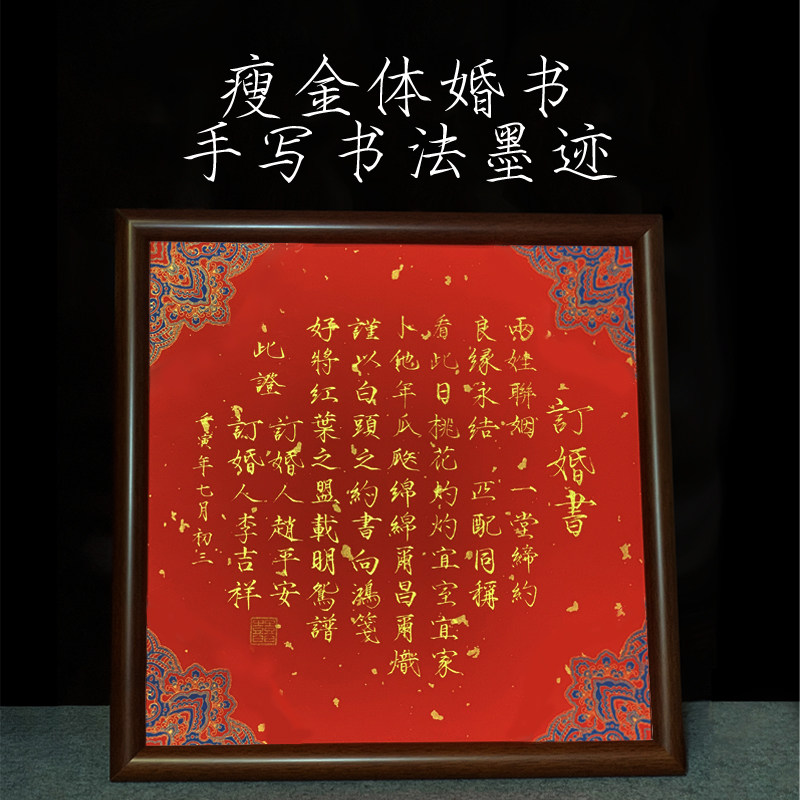 瘦金体婚书
手写书法墨迹
訂婚書
兩姓聯姻 一堂締約
良緣永结 匹配同稱
看此日桃花灼灼宜室宜家
卜他年瓜瓞绵綿爾昌爾熾
謹以白頭之約書向鴻箋
好將红葉之盟載明鴛譜
此證
訂婚人趙平安
訂婚人李吉祥
壬寅年七月初三